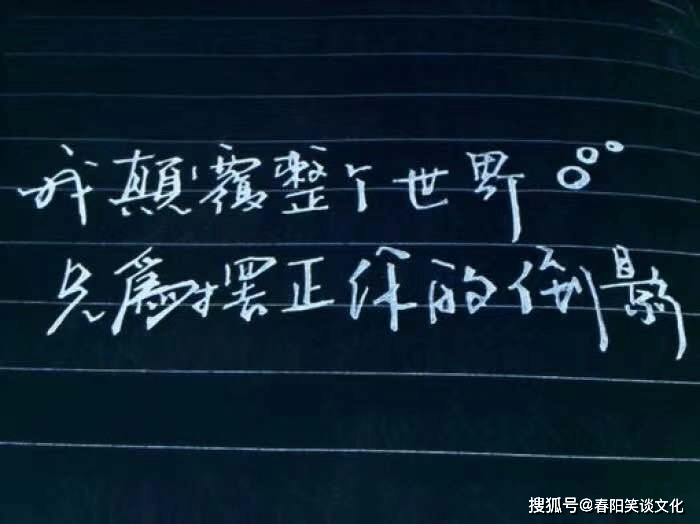 我顛覆整个世界
只爲摆正你的倒影
搜狐号@春阳笑谈文化